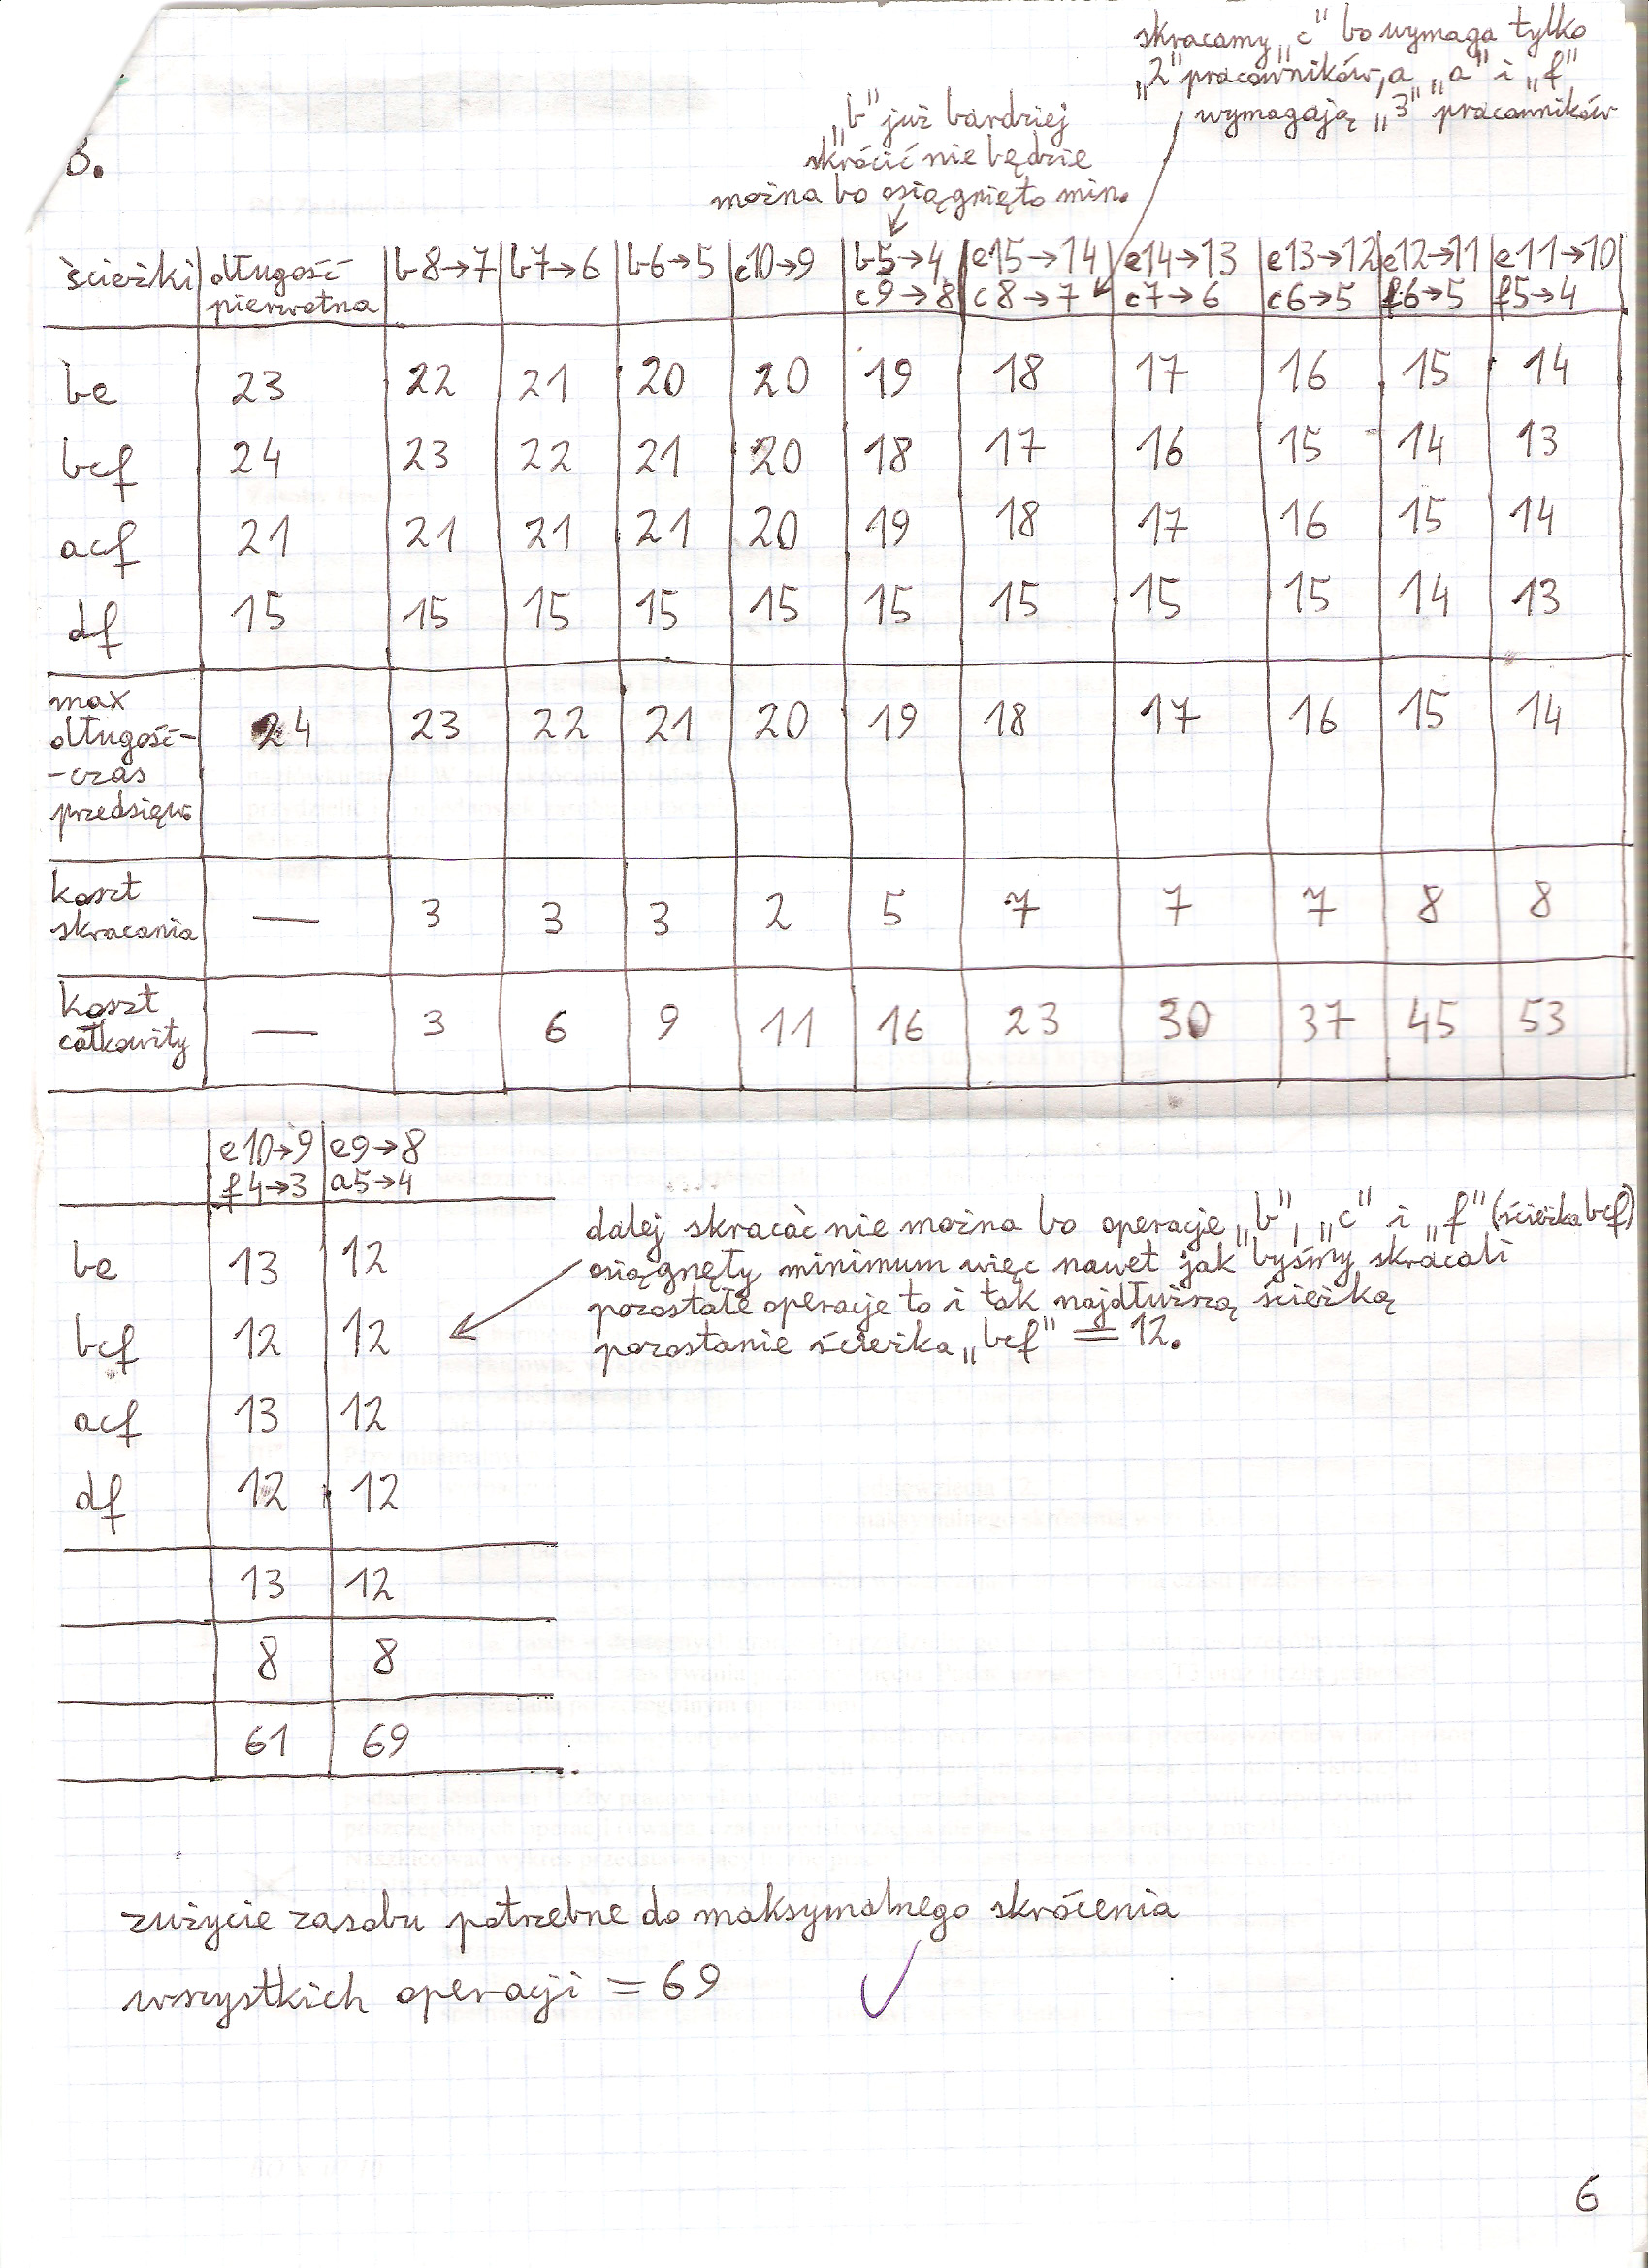 skracamy „c" bo wymaga tylko
„2" pracowników, a „a" i „f"
wymagają „3" pracowników
„b" już bardziej
skrócić nie będzie
można bo osiągnięto min.
B.
ścieżki długość pierwotna b8→7 b7→6 b6→5 c10→9 b5→4 c9→8 e15→14 c8→7 e14→13 c7→6 e13→12 c6→5 e12→11 f6→5 e11→10 f5→4
be 23 22 21 20 20 19 18 17 16 15 14
bcf 24 23 22 21 20 18 17 16 15 14 13
acf 21 21 21 21 20 19 18 17 16 15 14
df 15 15 15 15 15 15 15 15 15 14 13
max długość - - czas przedsięw. 24 23 22 21 20 19 18 17 16 15 14
koszt skracania — 3 3 3 2 5 7 7 7 8 8
koszt całkowity — 3 6 9 11 16 23 30 37 45 53
e10→9 f4→3 e9→8 a5→4
be 13 12
bcf 12 12
acf 13 12
df 12 12
13 12
8 8
61 69
dalej skracać nie można bo operacje „b", „c" i „f" (ścieżka bcf)
osiągnęły minimum więc nawet jak byśmy skracali
pozostałe operacje to i tak najdłuższą ścieżką
pozostanie ścieżka „bcf" = 12.
zużycie zasobu potrzebne do maksymalnego skrócenia
wszystkich operacji = 69
6